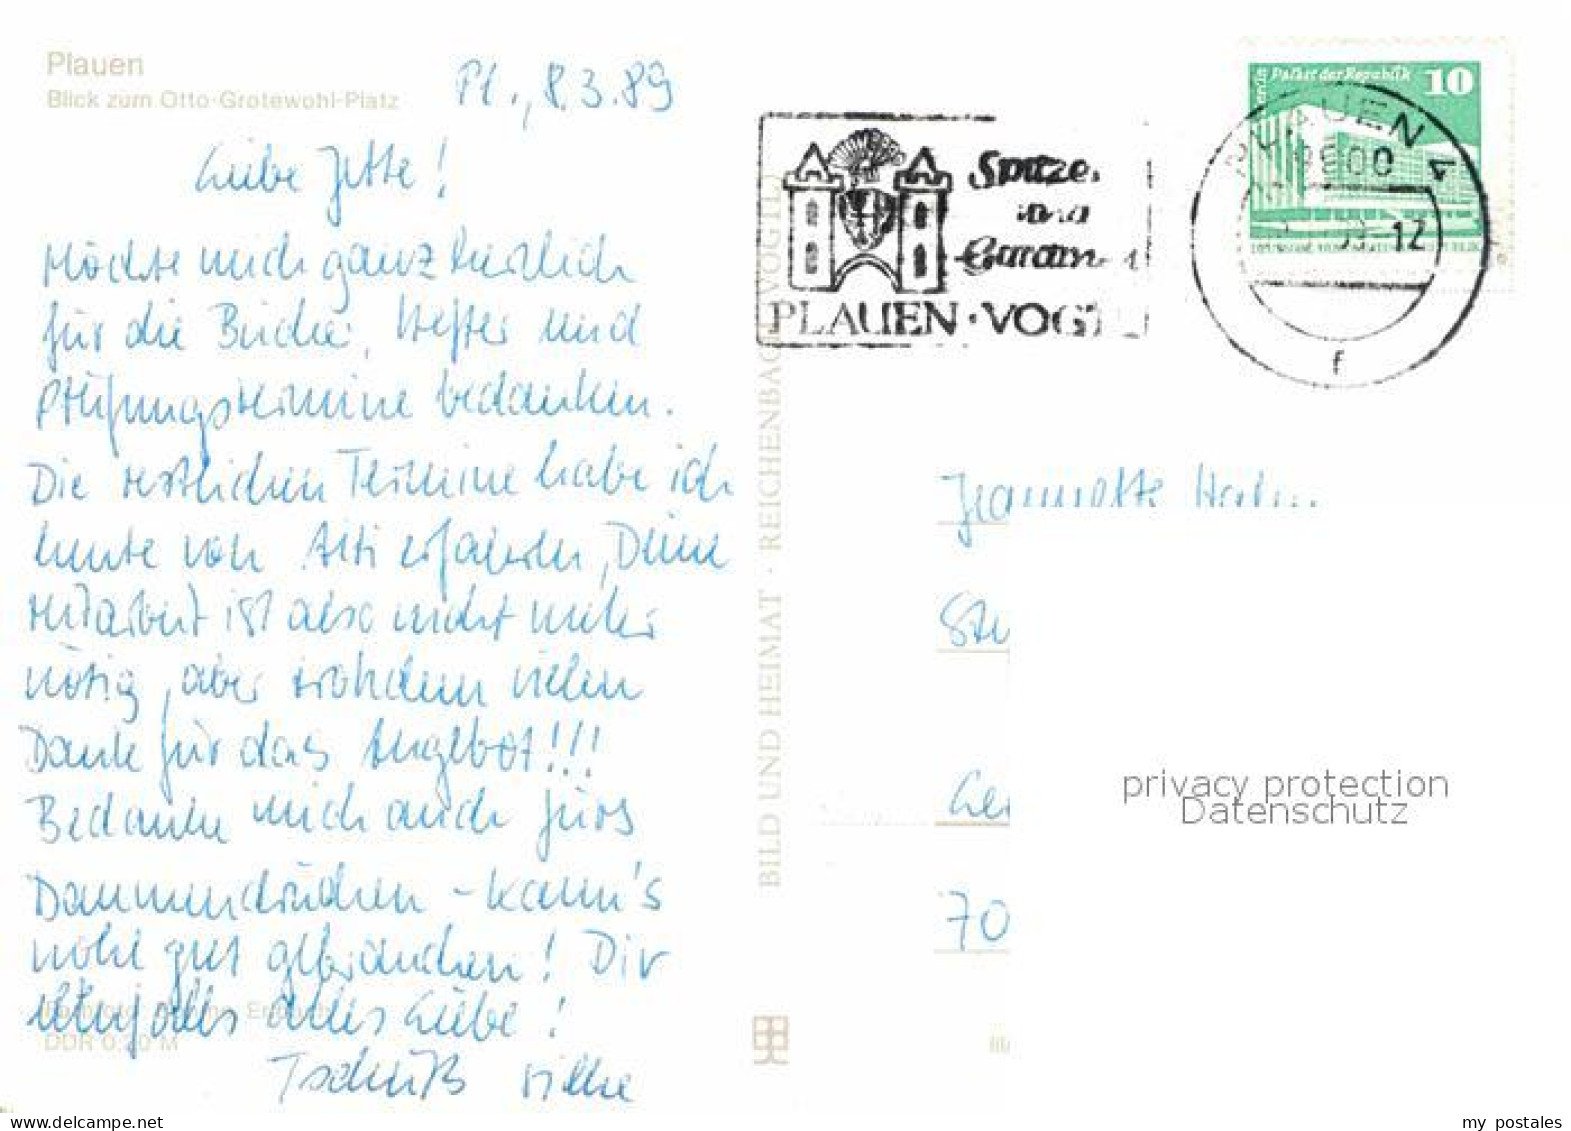 Plauen
Blick zum Otto-Grotewohl-Platz
Pl., 8.3.89
Liebe Jette!
Möchte mich ganz herzlich
für die Bücher, Hefter und
Prüfungstermine bedanken.
Die restlichen Termine habe ich
heute von erfahren, Deine
Mitarbeit ist also nicht mehr
nötig, aber trotzdem vielen
Dank für das Angebot!!!
Bedanke mich auch fürs
Daumendrücken - kann's
wohl gut gebrauchen! Dir
ebenfalls alles Liebe!
Tschüß
DDR 0,20 M
BILD UND HEIMAT · REICHENBACH VOGTL
Spitzen
und
Gardinen
PLAUEN · VOGTL
Palast der Republik 10
PLAUEN 4
9900
12
f
Jeannette
70
privacy protection
Datenschutz
www.delcampe.net
my_postales